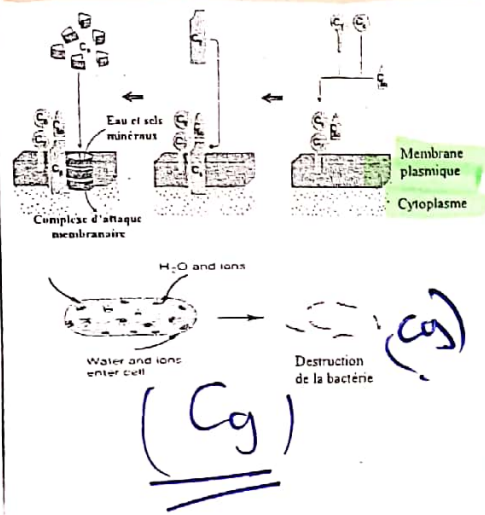 Eau et sels
minéraux
Membrane
plasmique
Cytoplasme
Complexe d'attaque
membranaire
H₂O and ions
Water and ions
enter cell
Destruction
de la bactérie
(C9)
(C9)